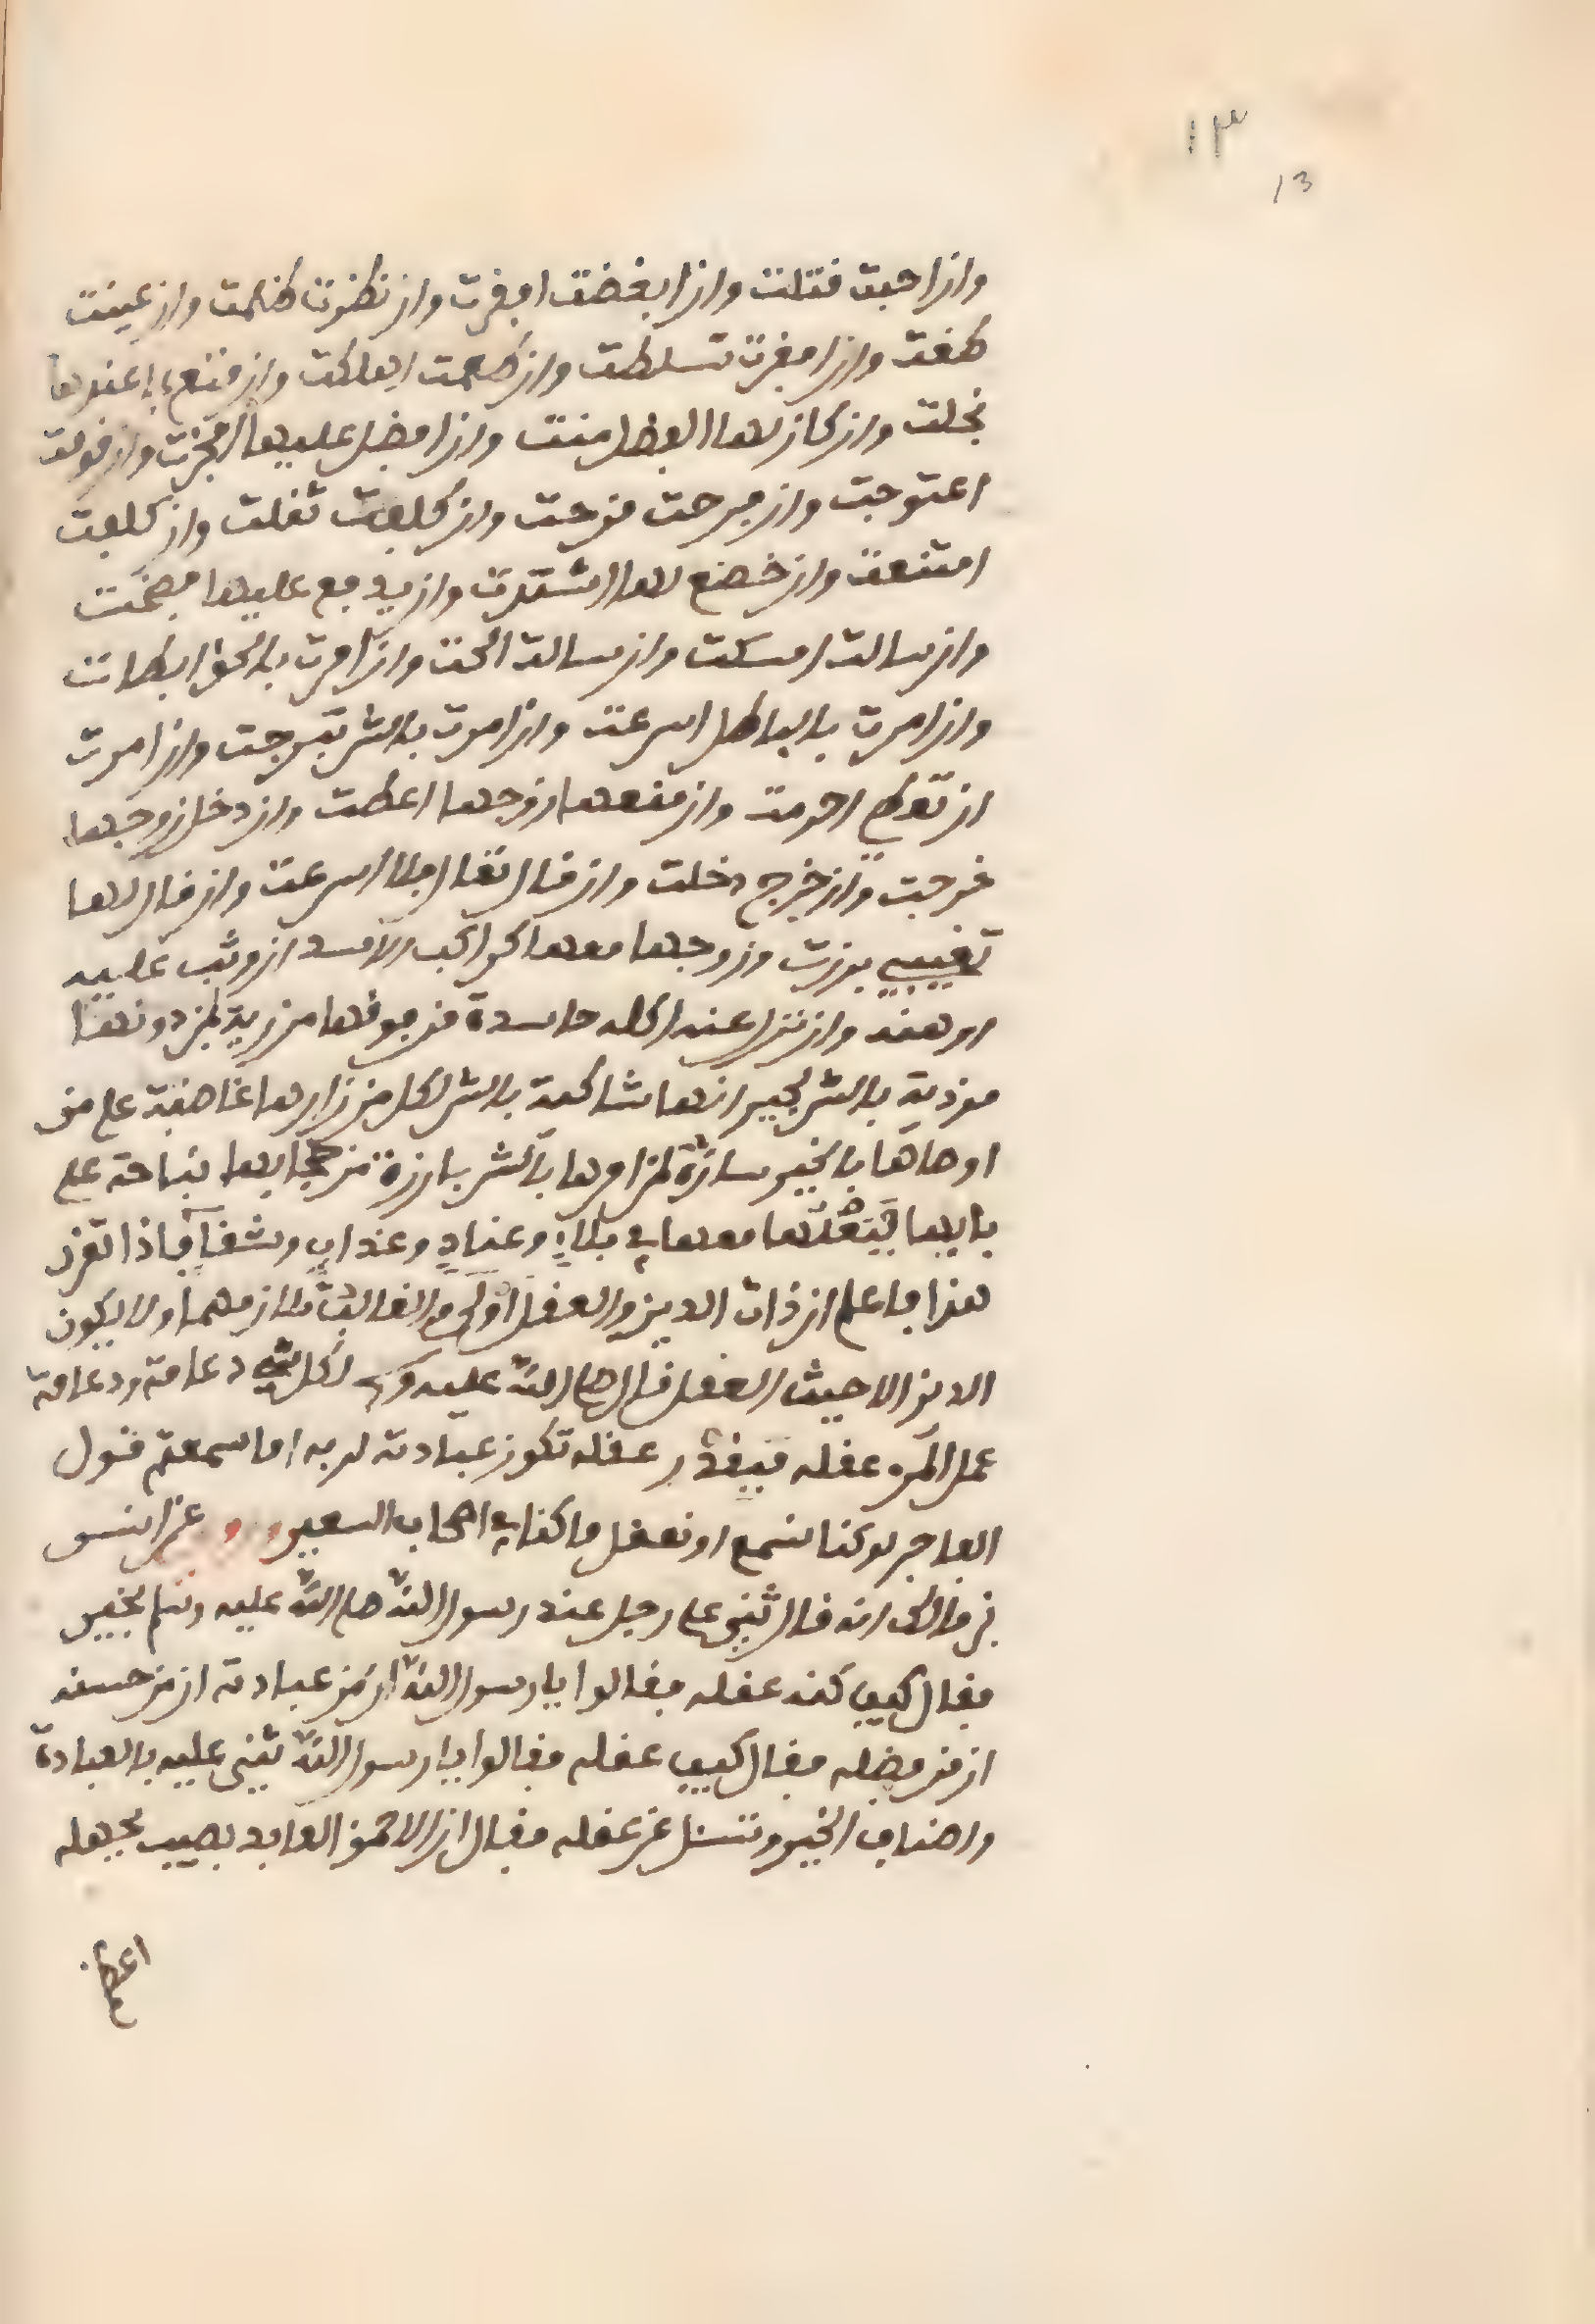 ١٣
13
وان احبت قتلت وان ابغضت افقرت وان نظرت ظلمت وان غنيت
طغت وان افقرت تسلطت وان حكمت اهلكت وان قنع بما عندها
بخلت وان كان لها الفضل منت وان افضل عليها انجزت وان قومت
اعتوجت وان فرحت مرحت وان كلفت ثقلت وان كلفت
امتنعت وان خضع لها اشتدت وان يدفع عليها
وان سالت امسكت وان سالت الحت وان امرت بالحق ابطات
وان امرت بالباطل اسرعت وان امرت بالستر تبرجت وان امرت
ان تعطي احرمت وان منعها زوجها اعطت وان دخل زوجها
خرجت وان خرج دخلت وان قال اسرعت وان قال لها
تغيبي برزت وزوجها معها كراكب الاسد ان وثب عليه
اوهنه وان نزل عنه اكله حاسدة من فوقها مزرية لمن دونها
موذية بالشر لجيرانها بالشر لكل من زارها غاضبة على من
اوصاها بالخير لمن امرها بالشر بارزة من حجابها نباحة على
بابها فبعلها معها في بلاء وعناد وعذاب وشقاء فاذا تقرر
هذا فاعلم ان ذات الدين والعقل اولى والغالب تلازمهما ولا يكون
الدين الا حيث العقل قال صلى الله عليه وسلم لكل شيء دعامة ودعامة
عمل المرء عقله فبقدر عقله تكون عبادته لربه اما سمعتم قول
الفاجر لو كنا نسمع او نعقل ما كنا في اصحاب السعير عن انس
بن مالك انه قال اثني على رجل عند رسول الله صلى الله عليه وسلم بخير
فقال كيف كنه عقله فقالوا يا رسول الله ان من عبادته ان من حسنه
ان من فضله فقال كيف عقله فقالوا يا رسول الله نثني عليه بالعبادة
واصناف الخير وتسئل عن عقله فقال ان الاحمق العابد يصيب بجهله
اعظم